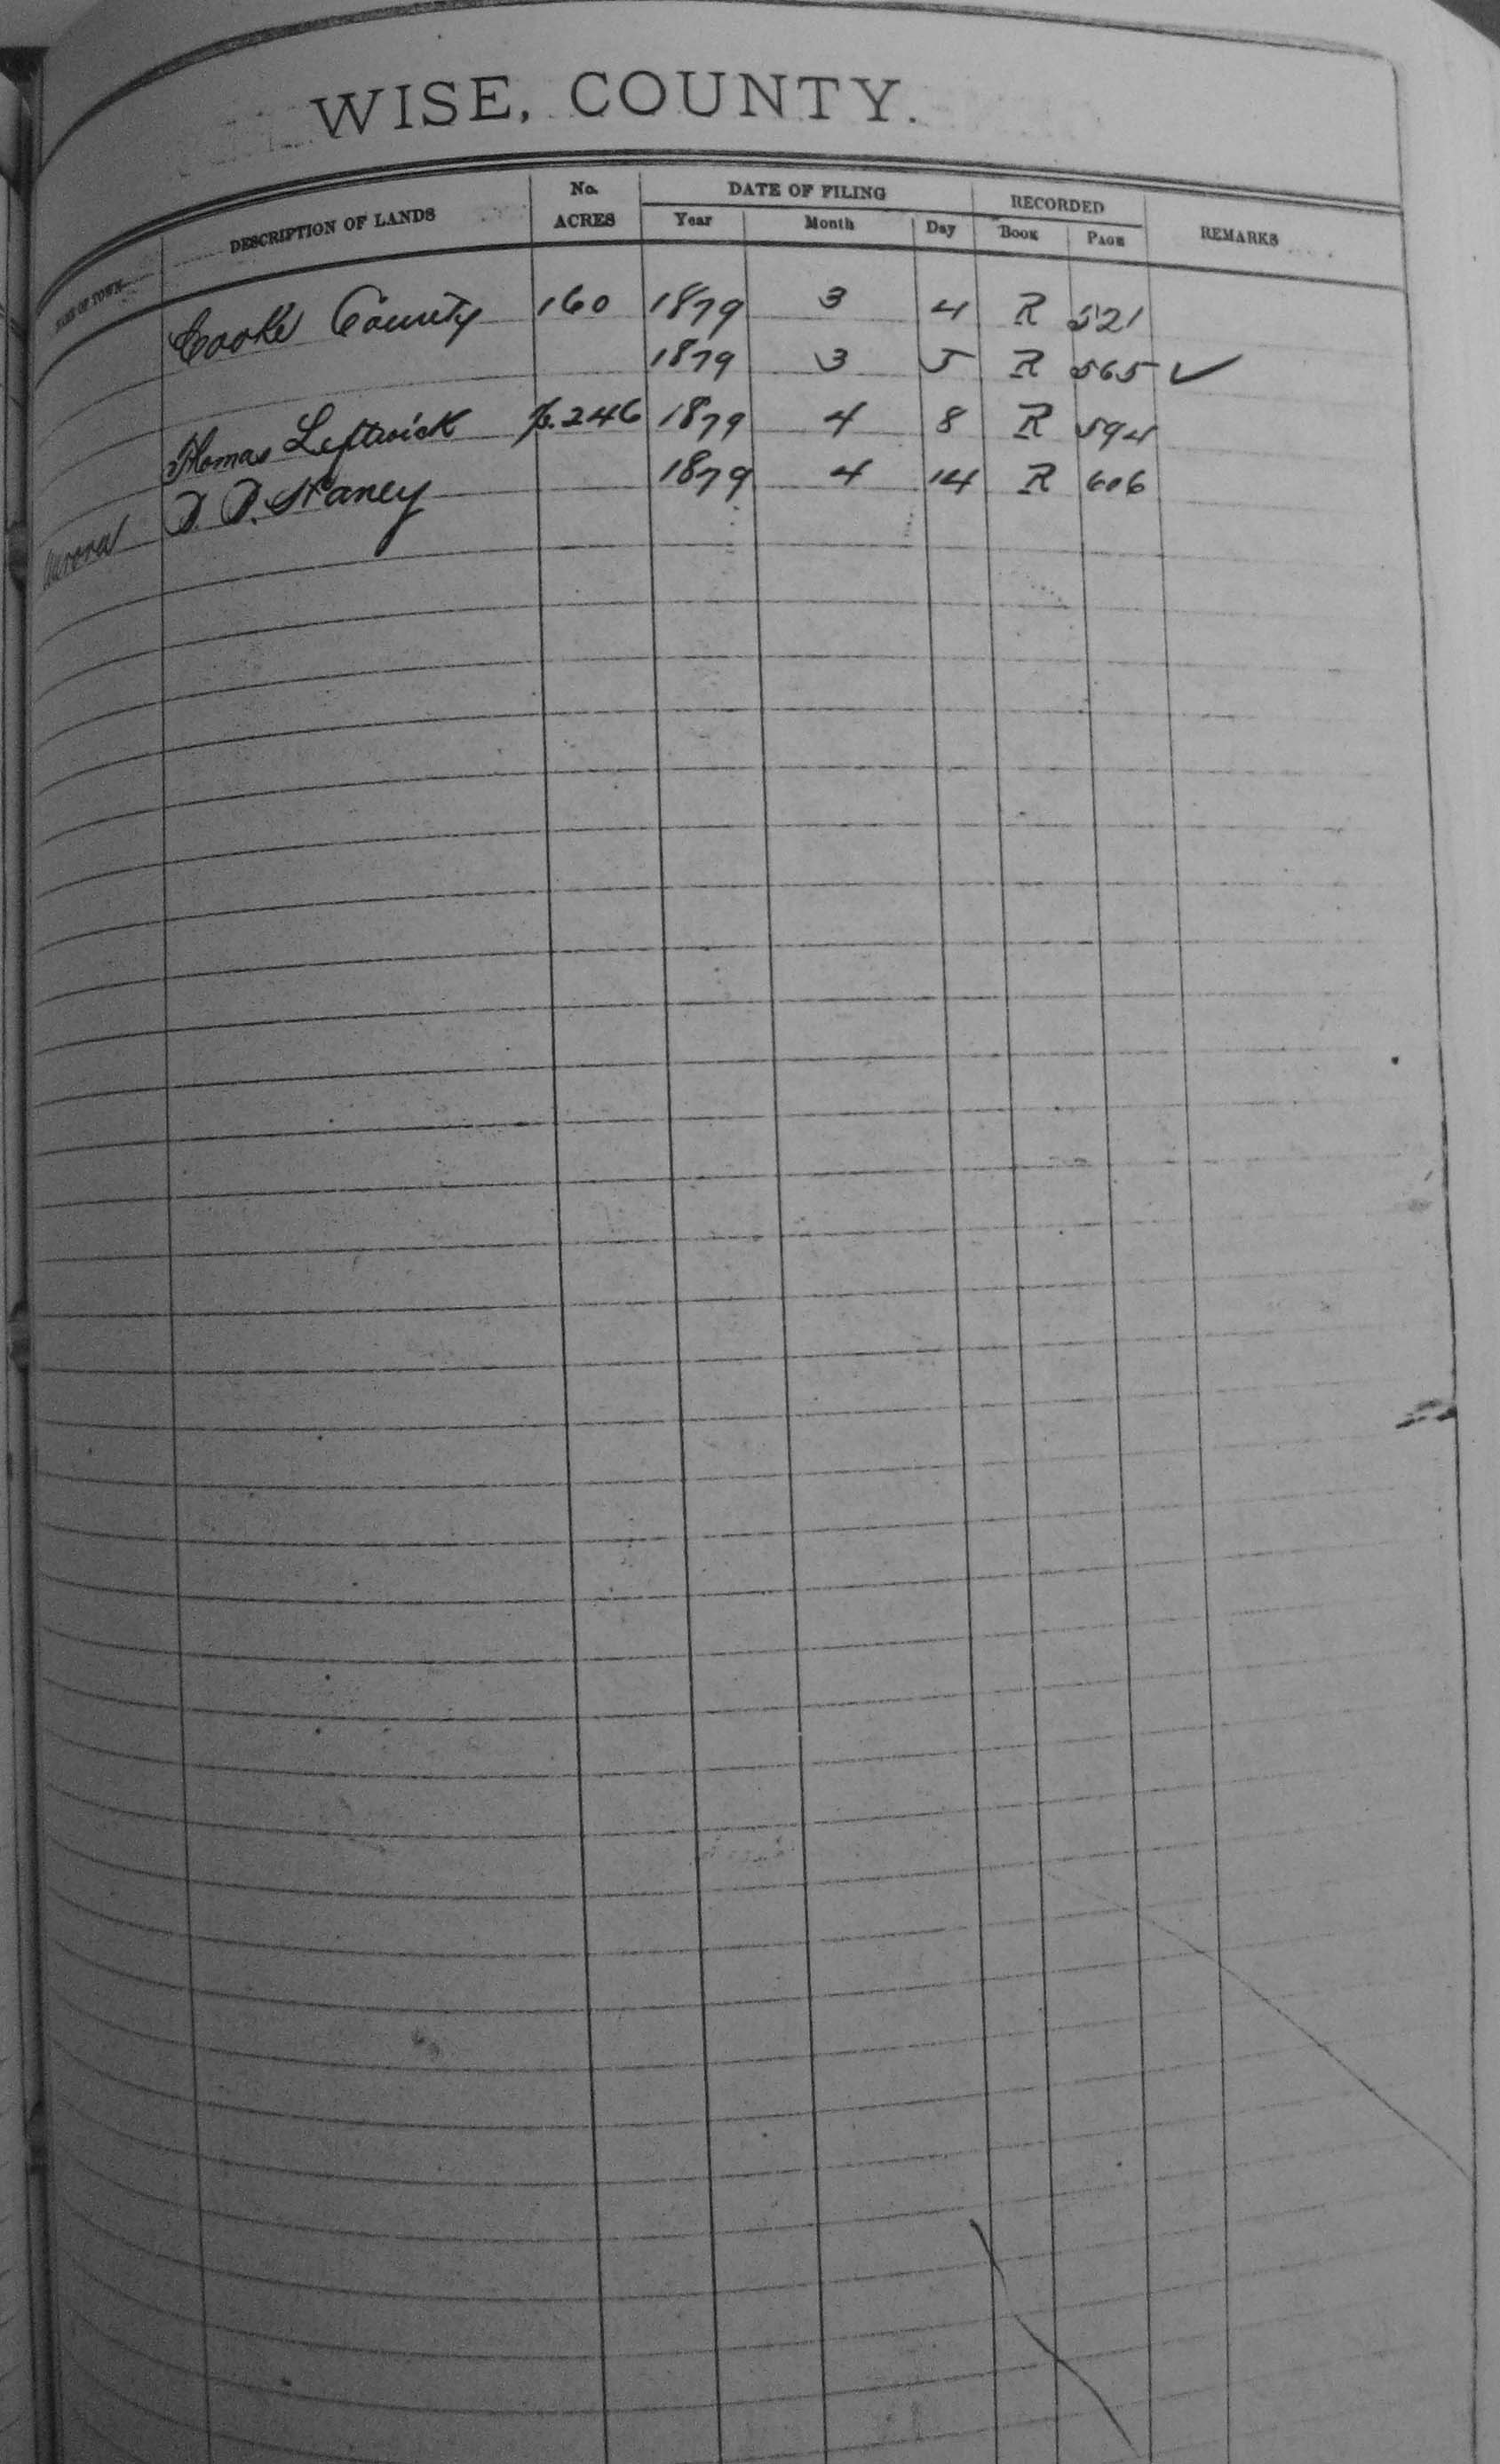 WISE, COUNTY.
NAME OF TOWN DESCRIPTION OF LANDS No. ACRES DATE OF FILING Year Month Day RECORDED BOOK PAGE REMARKS
Cooke County 160 1879 3 4 R 521
1879 3 5 R 565 ✓
Thomas Leftwick 246 1879 4 8 R 594
Aurora Haney 1879 4 14 R 606